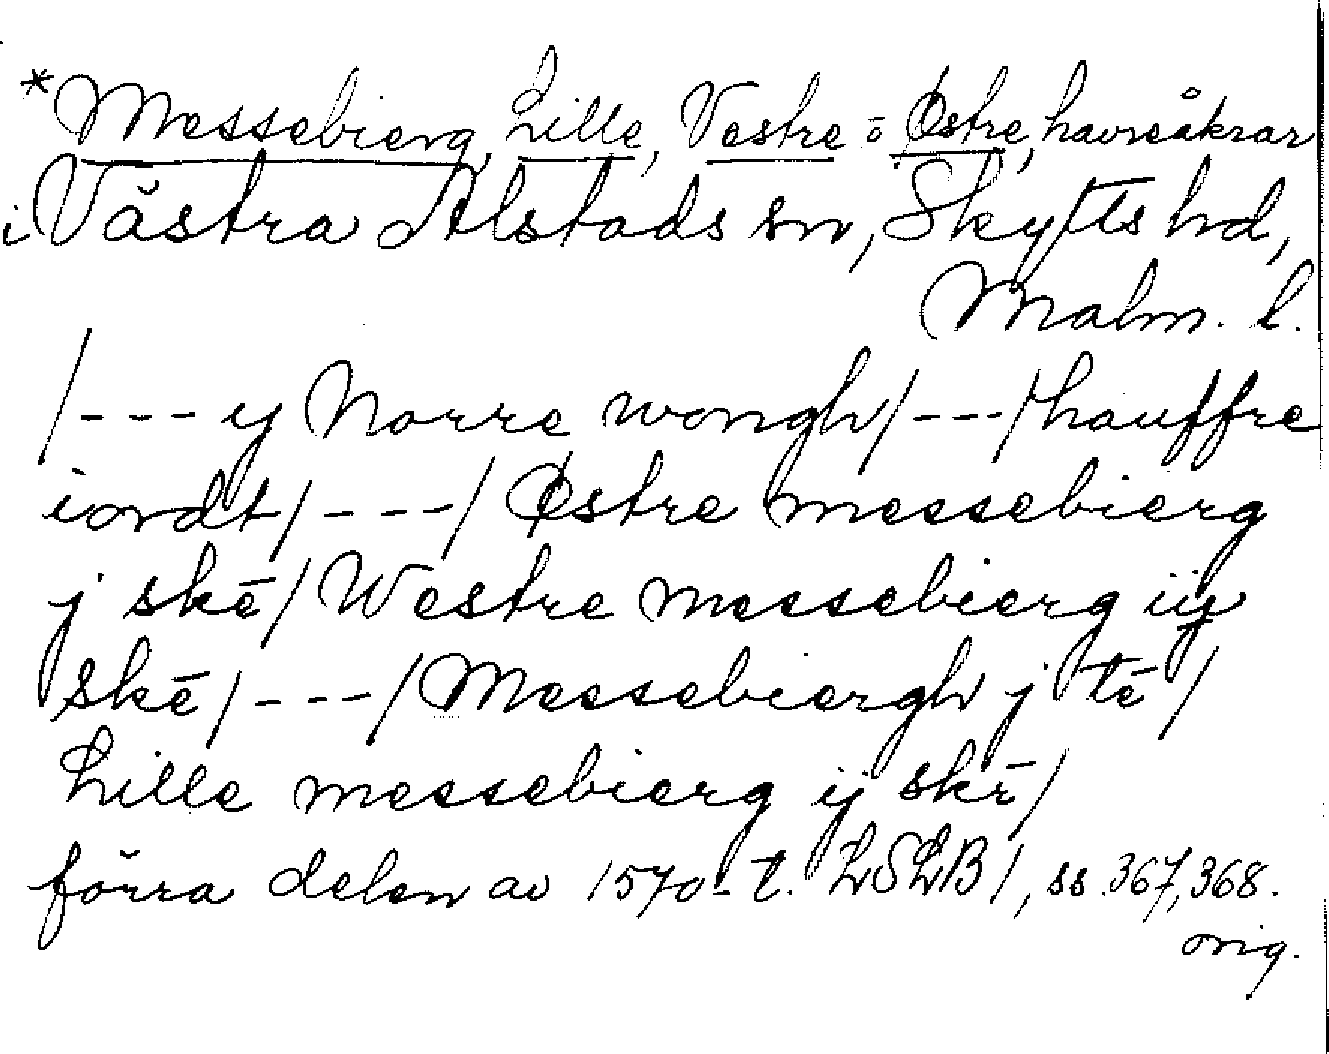 *Messebierg, Lille, Vestre o Østre, havreåkrar
i Västra Alstads sn, Skytts hd,
Malm. l.
/--- y Norre wongh/---/hauffre
iordt/---/Østre messebierg
j skē/Westre messebierg iij
skē/---/Messebiergh j tē/
Lille messebierg ij skē/
förra delen av 1570-t. LSLB 1, ss. 367, 368.
orig.